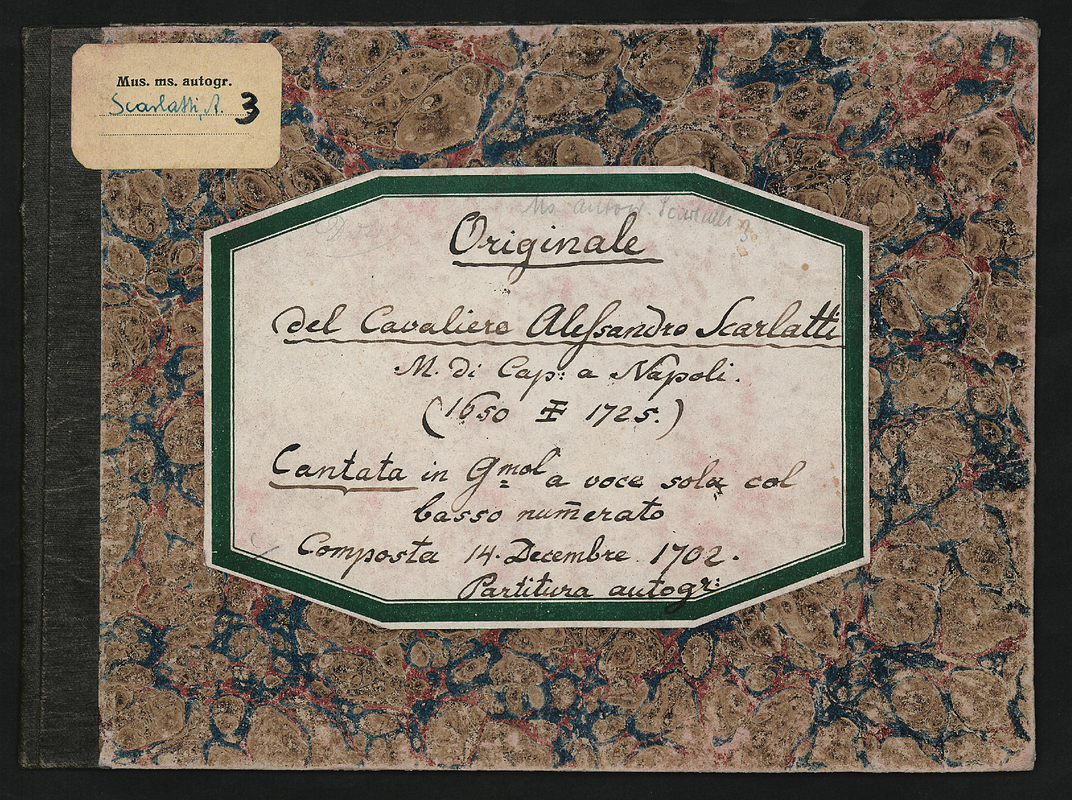 Mus. ms. autogr.
Scarlatti, A. 3
Ms. autogr. Scarlatti 3
Originale
del Cavaliere Alessandro Scarlatti
M. di Cap: a Napoli.
(1650 ✠ 1725.)
Cantata in Gmol a voce sola col
basso num̄erato
Composta 14. Decembre 1702.
Partitura autogr: